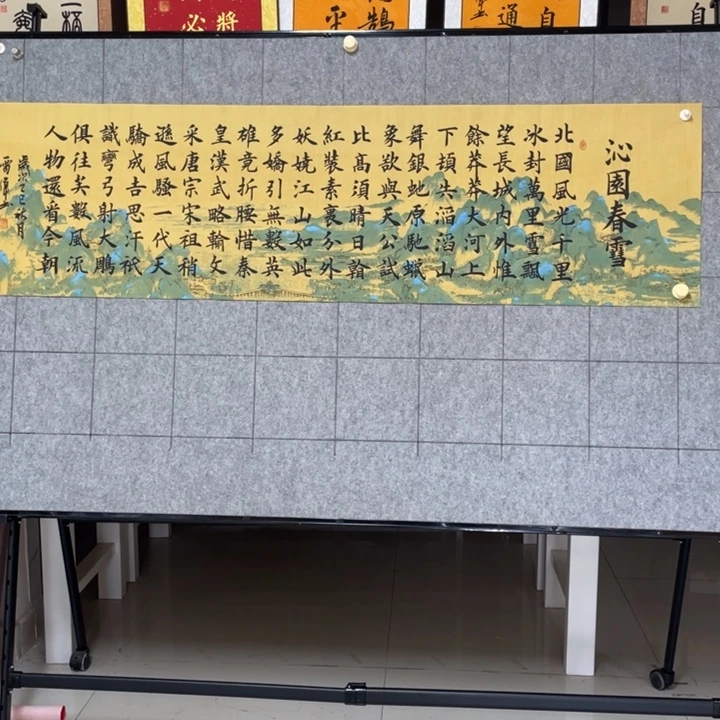 沁園春雪
北國風光千里
冰封萬里雪飄
望長城内外惟
餘莽莽大河上
下頓失滔滔山
舞銀蛇原馳蠟
象欲與天公試
比高須晴日
紅裝素裹分外
妖嬈江山如此
多嬌引無數英
雄竟折腰惜秦
皇漢武略輸文
采唐宗宋祖稍
遜風騷一代天
驕成吉思汗衹
識彎弓射大鵰
俱往矣數風流
人物還看今朝
歲次乙巳秋月